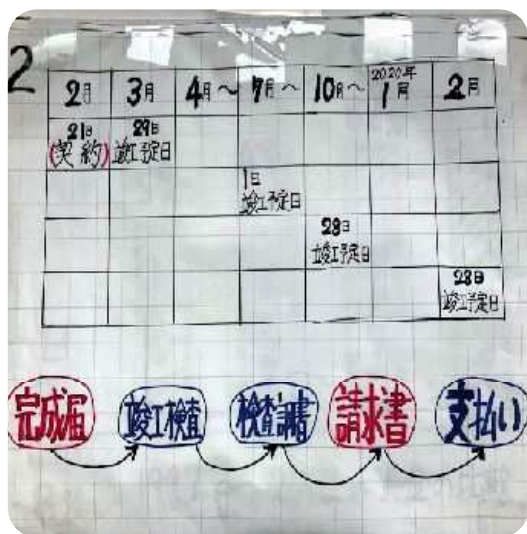 2
2月 3月 4月~ 7月~ 10月~ 2020年 1月 2月
21日 29日
(契約) 竣工予定日
1日
竣工予定日
28日
竣工予定日
28日
竣工予定日
完成届 竣工検査 検査調書 請求書 支払い